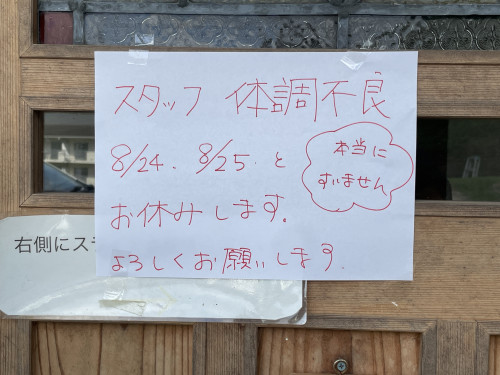 スタッフ 体調不良
8/24、8/25.と
お休みします。
よろしくお願いします。
本当に
すいません
右側にス